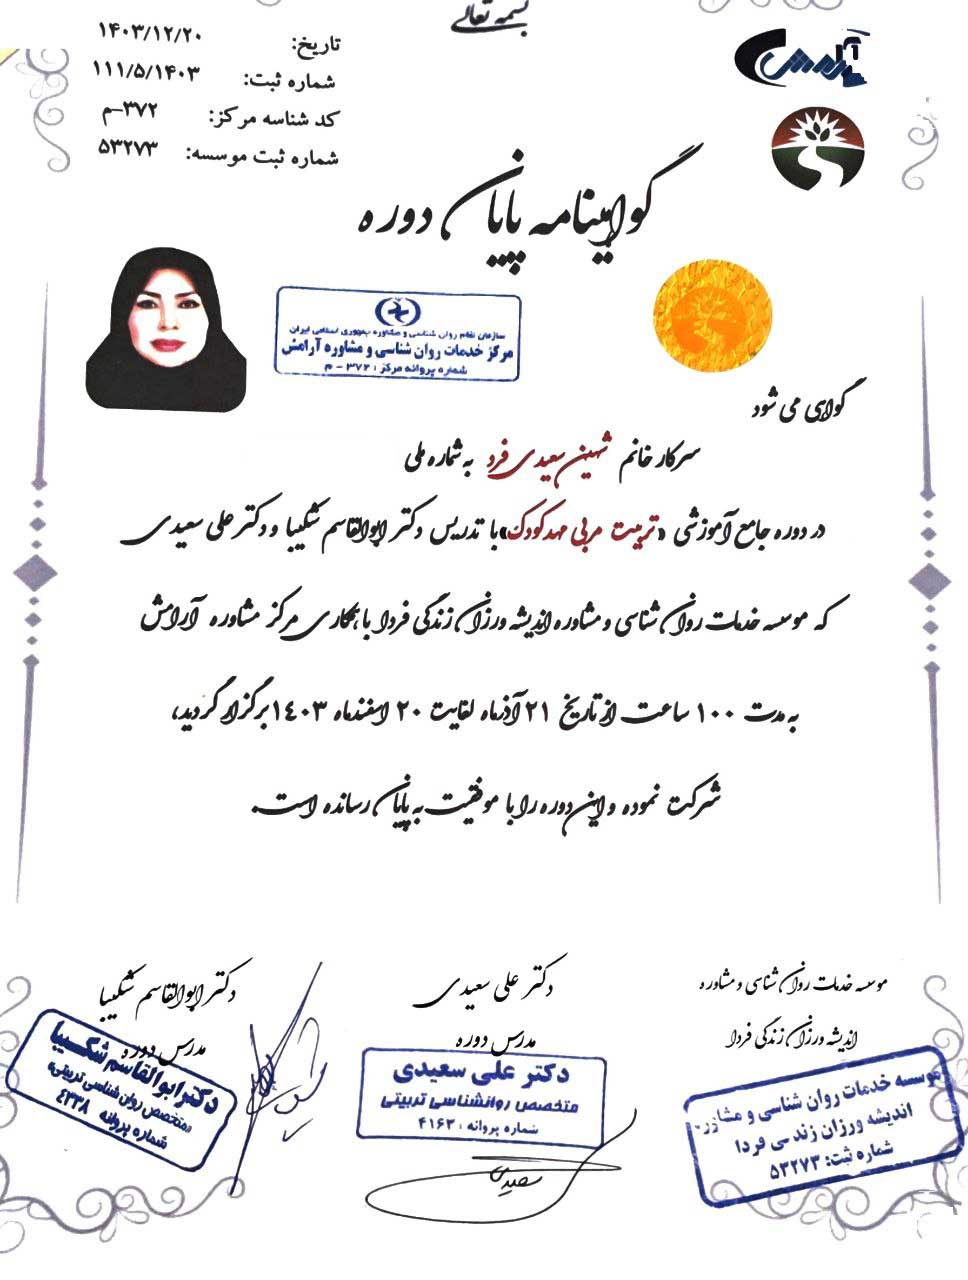 بسمه تعالی
تاریخ: ۱۴۰۳/۱۲/۲۰
شماره ثبت: ۱۱۱/۵/۱۴۰۳
کد شناسه مرکز: ۳۷۲-م
شماره ثبت موسسه: ۵۳۲۷۳
آرامش
گواهینامه پایان دوره
سازمان نظام روان شناسی و مشاوره جمهوری اسلامی ایران
مرکز خدمات روان شناسی و مشاوره آرامش
شماره پروانه مرکز : ۳۷۲ - م
گواهی می شود
سرکار خانم شهین سعیدی فرد به شماره ملی
در دوره جامع آموزشی «تربیت مربی مهدکودک» با تدریس دکتر ابوالقاسم شکیبا و دکتر علی سعیدی
که موسسه خدمات روان شناسی و مشاوره اندیشه ورزان زندگی فردا با همکاری مرکز مشاوره آرامش
به مدت ۱۰۰ ساعت از تاریخ ۲۱ آذرماه لغایت ۲۰ اسفندماه ۱۴۰۳ برگزار گردید،
شرکت نموده و این دوره را با موفقیت به پایان رسانده است.
موسسه خدمات روان شناسی و مشاوره
اندیشه ورزان زندگی فردا
موسسه خدمات روان شناسی و مشاوره
اندیشه ورزان زندگی فردا
شماره ثبت: ۵۳۲۷۳
دکتر علی سعیدی
مدرس دوره
دکتر علی سعیدی
متخصص روانشناسی تربیتی
شماره پروانه : ۴۱۶۳
سعیدی
دکتر ابوالقاسم شکیبا
مدرس دوره
دکتر ابوالقاسم شکیبا
«متخصص روان شناسی تربیتی»
شماره پروانه ۴۲۳۸